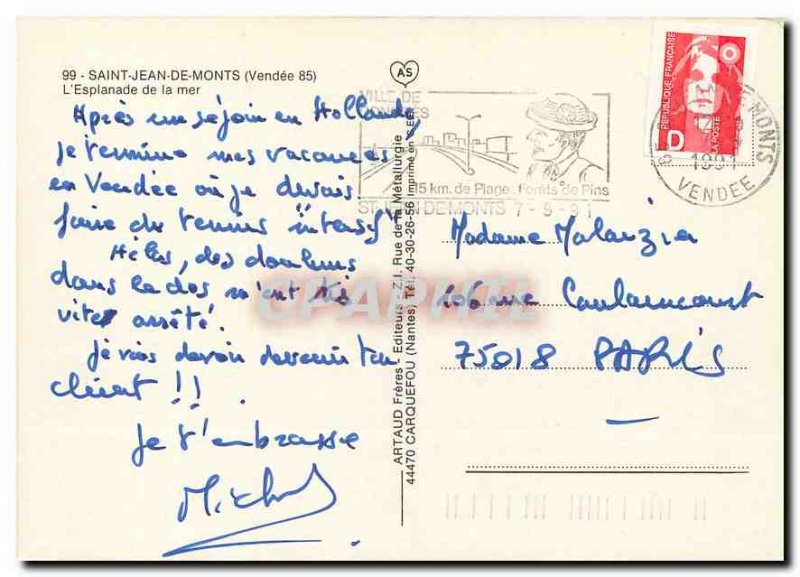 99 - SAINT-JEAN-DE-MONTS (Vendée 85)
L'Esplanade de la mer
Après un séjour en Hollande
je termine mes vacances
en Vendée où je devais
faire du tennis "intensif"
Hélas, des douleurs
dans le dos m'ont très
vite arrêté.
Je vais devoir devenir ton
client !!
Je t'embrasse
Michel
ARTAUD Frères, Editeurs - Z.I. Rue de la Métallurgie
44470 CARQUEFOU (Nantes) Tél. 40-30-26-56 Imprimé en C.E.E.
AS
VILLE DE
CONGRES
15 km. de Plage. Forêts de Pins
ST JEAN DE MONTS 7-9-91
REPUBLIQUE FRANÇAISE
LA POSTE
D
DE MONTS
1991
VENDEE
Madame
rue Caulaincourt
75018 PARIS
CPAPHIL